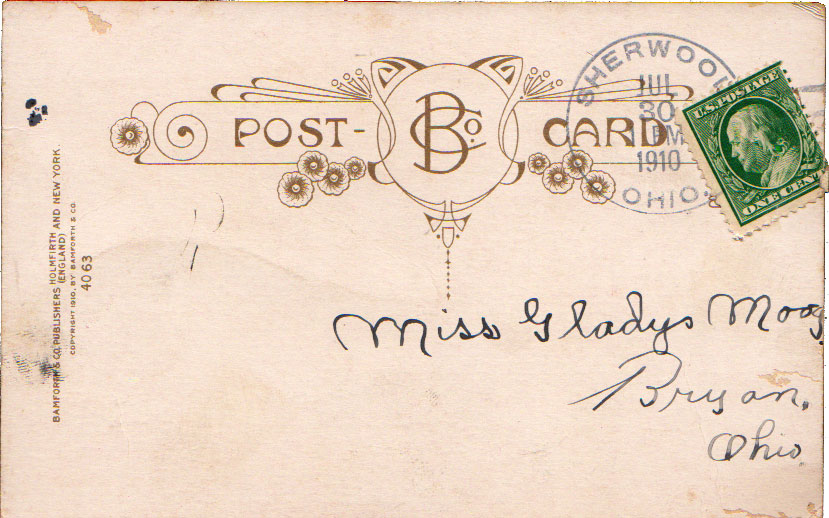 POST- BCo. CARD
SHERWOOD
JUL
30
PM
1910
OHIO.
U.S. POSTAGE
ONE CENT
BAMFORTH & CO. PUBLISHERS HOLMFIRTH AND NEW YORK.
(ENGLAND)
COPYRIGHT 1910, BY BAMFORTH & CO.
4063
Miss Gladys Moog
Bryan,
Ohio